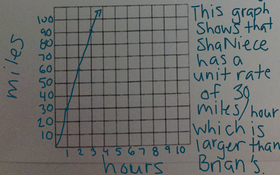 miles
100
90
80
70
60
50
40
30
20
10
1 2 3 4 5 6 7 8 9 10
hours
This graph
Shows that
ShaNiece
has a
unit rate
of 30
miles/hour
which is
larger than
Brian's.